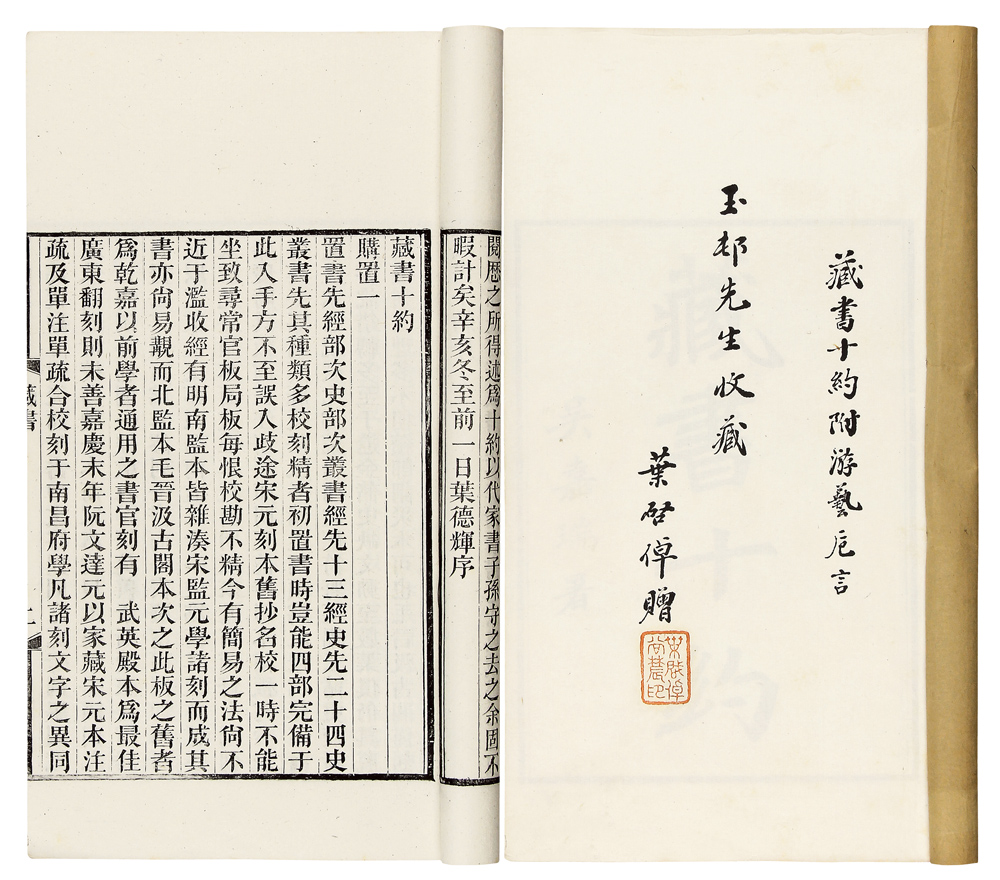 藏書十約附游藝卮言
玉邨先生收藏
葉啓倬贈
葉啟倬
尚農印
閱歷之所得述爲十約以代家書子孫守之去之余固不
暇計矣辛亥冬至前一日葉德輝序
藏書十約
購置一
置書先經部次史部次叢書經先十三經史先二十四史
叢書先其種類多校刻精者初置書時豈能四部完備于
此入手方不至誤入歧途宋元刻本舊抄名校一時不能
坐致尋常官板局板每恨校勘不精今有簡易之法尙不
近于濫收經有明南監本皆雜湊宋監元學諸刻而成其
書亦尙易覯而北監本毛晉汲古閣本次之此板之舊者
爲乾嘉以前學者通用之書官刻有 武英殿本爲最佳
廣東翻刻則未善嘉慶末年阮文達元以家藏宋元本注
疏及單注單疏合校刻于南昌府學凡諸刻文字之異同
藏書